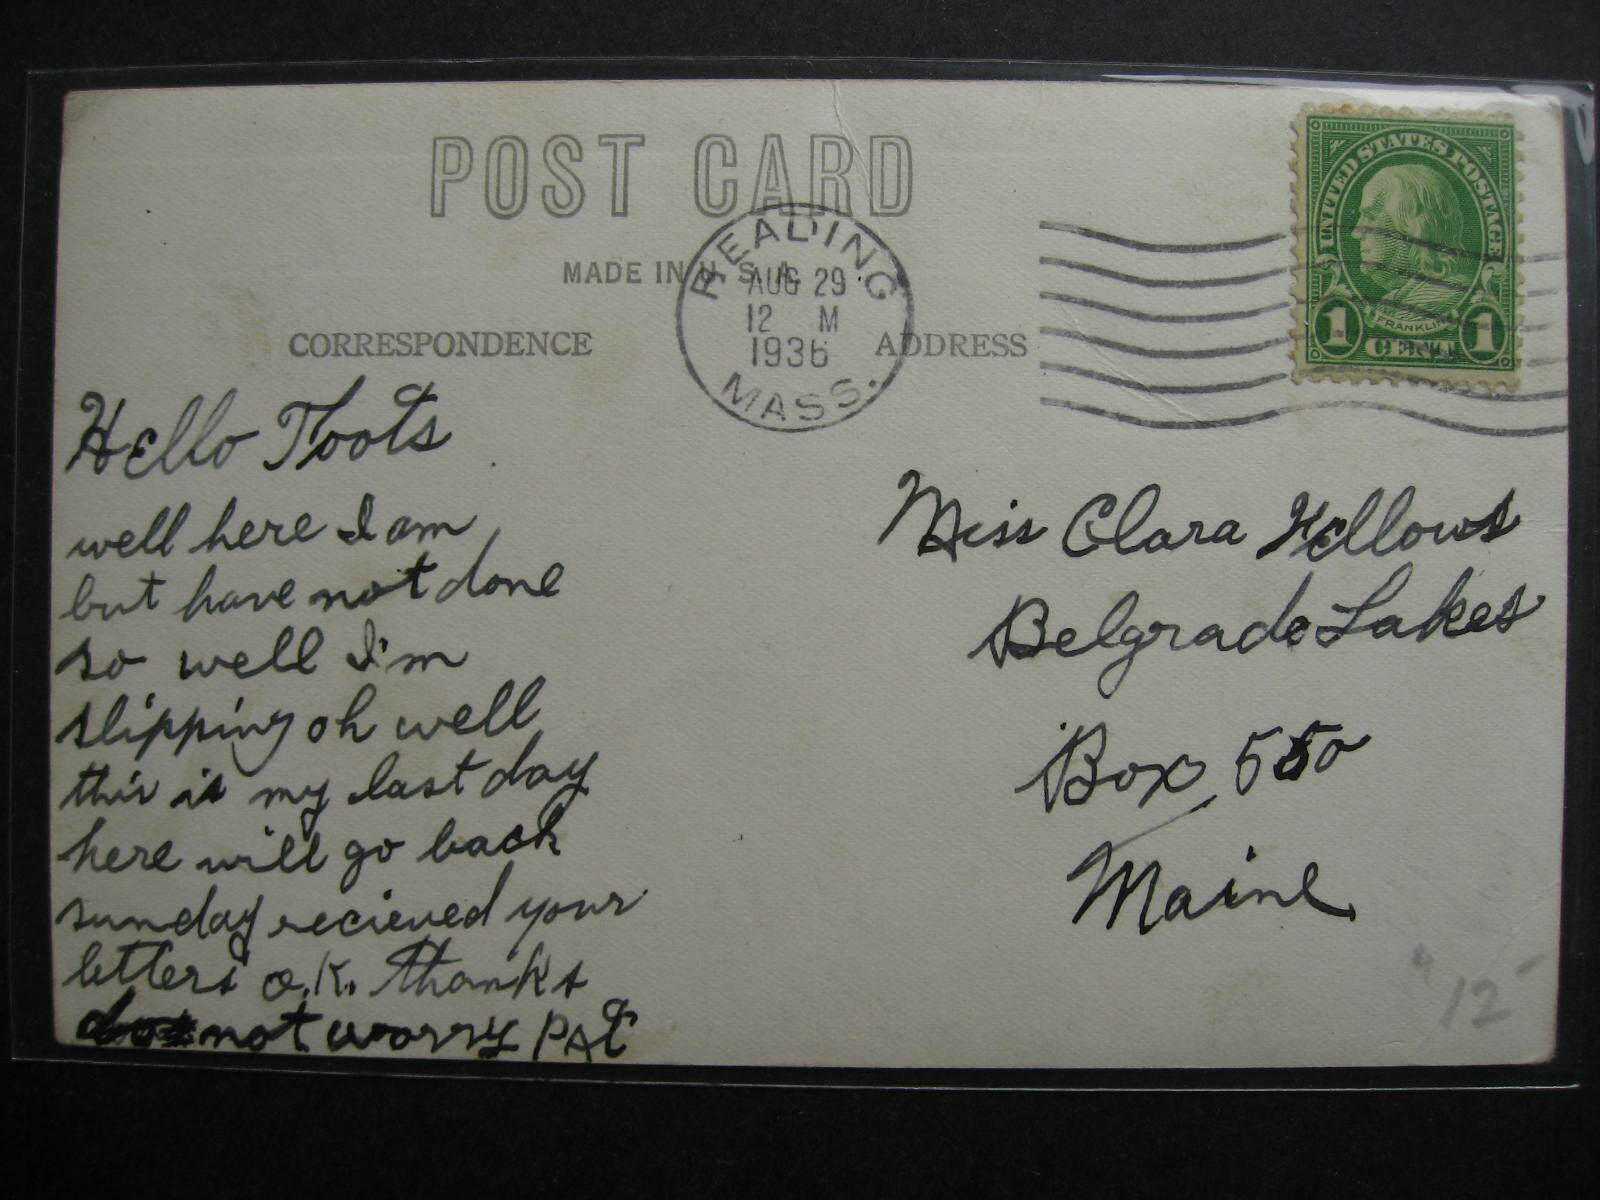 POST CARD
MADE IN U.S.A.
CORRESPONDENCE
ADDRESS
READING
AUG 29
12 M
1936
MASS.
UNITED STATES POSTAGE
FRANKLIN
1 CENT 1
Hello Toots
well here I am
but have not done
so well I'm
slipping oh well
this is my last day
here will go back
sunday recieved your
letters O.K. thanks
do not worry PAt
Miss Clara Fellows
Belgrade Lakes
Box 550
Maine
12